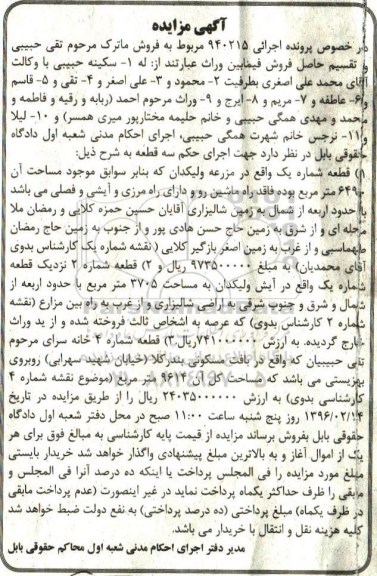 آگهی مزایده
در خصوص پرونده اجرائی ۹۴۰۲۱۵ مربوط به فروش ماترک مرحوم تقی حبیبی
و تقسیم حاصل فروش فیمابین وراث عبارتند از: له ۱- سکینه حبیبی با وکالت
آقای محمد علی اصغری بطرفیت ۲- محمود و ۳- علی اصغر و ۴- تقی و ۵- قاسم
و ۶- عاطفه و ۷- مریم و ۸- ایرج و ۹- وراث مرحوم احمد (ربابه و رقیه و فاطمه و
محمد و مهدی همگی حبیبی و خانم حلیمه مختارپور میری همسر) و ۱۰- لیلا
و ۱۱- نرجس خانم شهرت همگی حبیبی، اجرای احکام مدنی شعبه اول دادگاه
حقوقی بابل در نظر دارد جهت اجرای حکم سه قطعه به شرح ذیل:
۱) قطعه شماره یک واقع در مزرعه ولیکدان که بنابر سوابق موجود مساحت آن
۶۴۹۰ متر مربع بوده فاقد راه ماشین رو و دارای راه مرزی و آیشی و فصلی می باشد
با حدود اربعه از شمال به زمین شالیزاری آقایان حسین حمزه کلایی و رمضان ملا
محله ای و از شرق به زمین حاج حسن هادی پور و از جنوب به زمین حاج رمضان
طهماسبی و از غرب به زمین اصغر بازگیر کلایی (نقشه شماره یک کارشناس بدوی
آقای محمدیان) به مبلغ ۹۷۳۵۰۰۰۰۰ ریال و ۲) قطعه شماره ۲ نزدیک قطعه
شماره یک واقع در آیش ولیکدان به مساحت ۳۷۰۵ متر مربع با حدود اربعه از
شمال و شرق و جنوب شرقی به اراضی شالیزاری و از غرب به راه بین مزارع (نقشه
شماره ۲ کارشناس بدوی) که عرصه به اشخاص ثالث فروخته شده و از ید وراث
خارج گردیده. به ارزش ۷۴۱۰۰۰۰۰۰ریال.۳) قطعه شماره ۴ خانه سرای مرحوم
تقی حبیبیان که واقع در بافت مسکونی بندارکلا (خیابان شهید سهرابی) روبروی
بهزیستی می باشد که مساحت کل آن ۹۶۱۴ متر مربع (موضوع نقشه شماره ۴
کارشناسی بدوی) به ارزش ۲۴۰۳۵۰۰۰۰۰۰ ریال را از طریق مزایده در تاریخ
۱۳۹۶/۰۲/۱۴ روز پنج شنبه ساعت ۱۱:۰۰ صبح در محل دفتر شعبه اول دادگاه
حقوقی بابل بفروش برساند مزایده از قیمت پایه کارشناسی به مبالغ فوق برای هر
یک از اموال آغاز و به بالاترین مبلغ پیشنهادی واگذار خواهد شد خریدار بایستی
مبلغ مورد مزایده را فی المجلس پرداخت یا اینکه ده درصد آنرا فی المجلس و
مابقی را ظرف حداکثر یکماه پرداخت نماید در غیر اینصورت (عدم پرداخت مابقی
در ظرف یکماه) مبلغ پرداختی (ده درصد پرداختی) به نفع دولت ضبط خواهد شد
کلیه هزینه نقل و انتقال با خریدار می باشد.
مدیر دفتر اجرای احکام مدنی شعبه اول محاکم حقوقی بابل